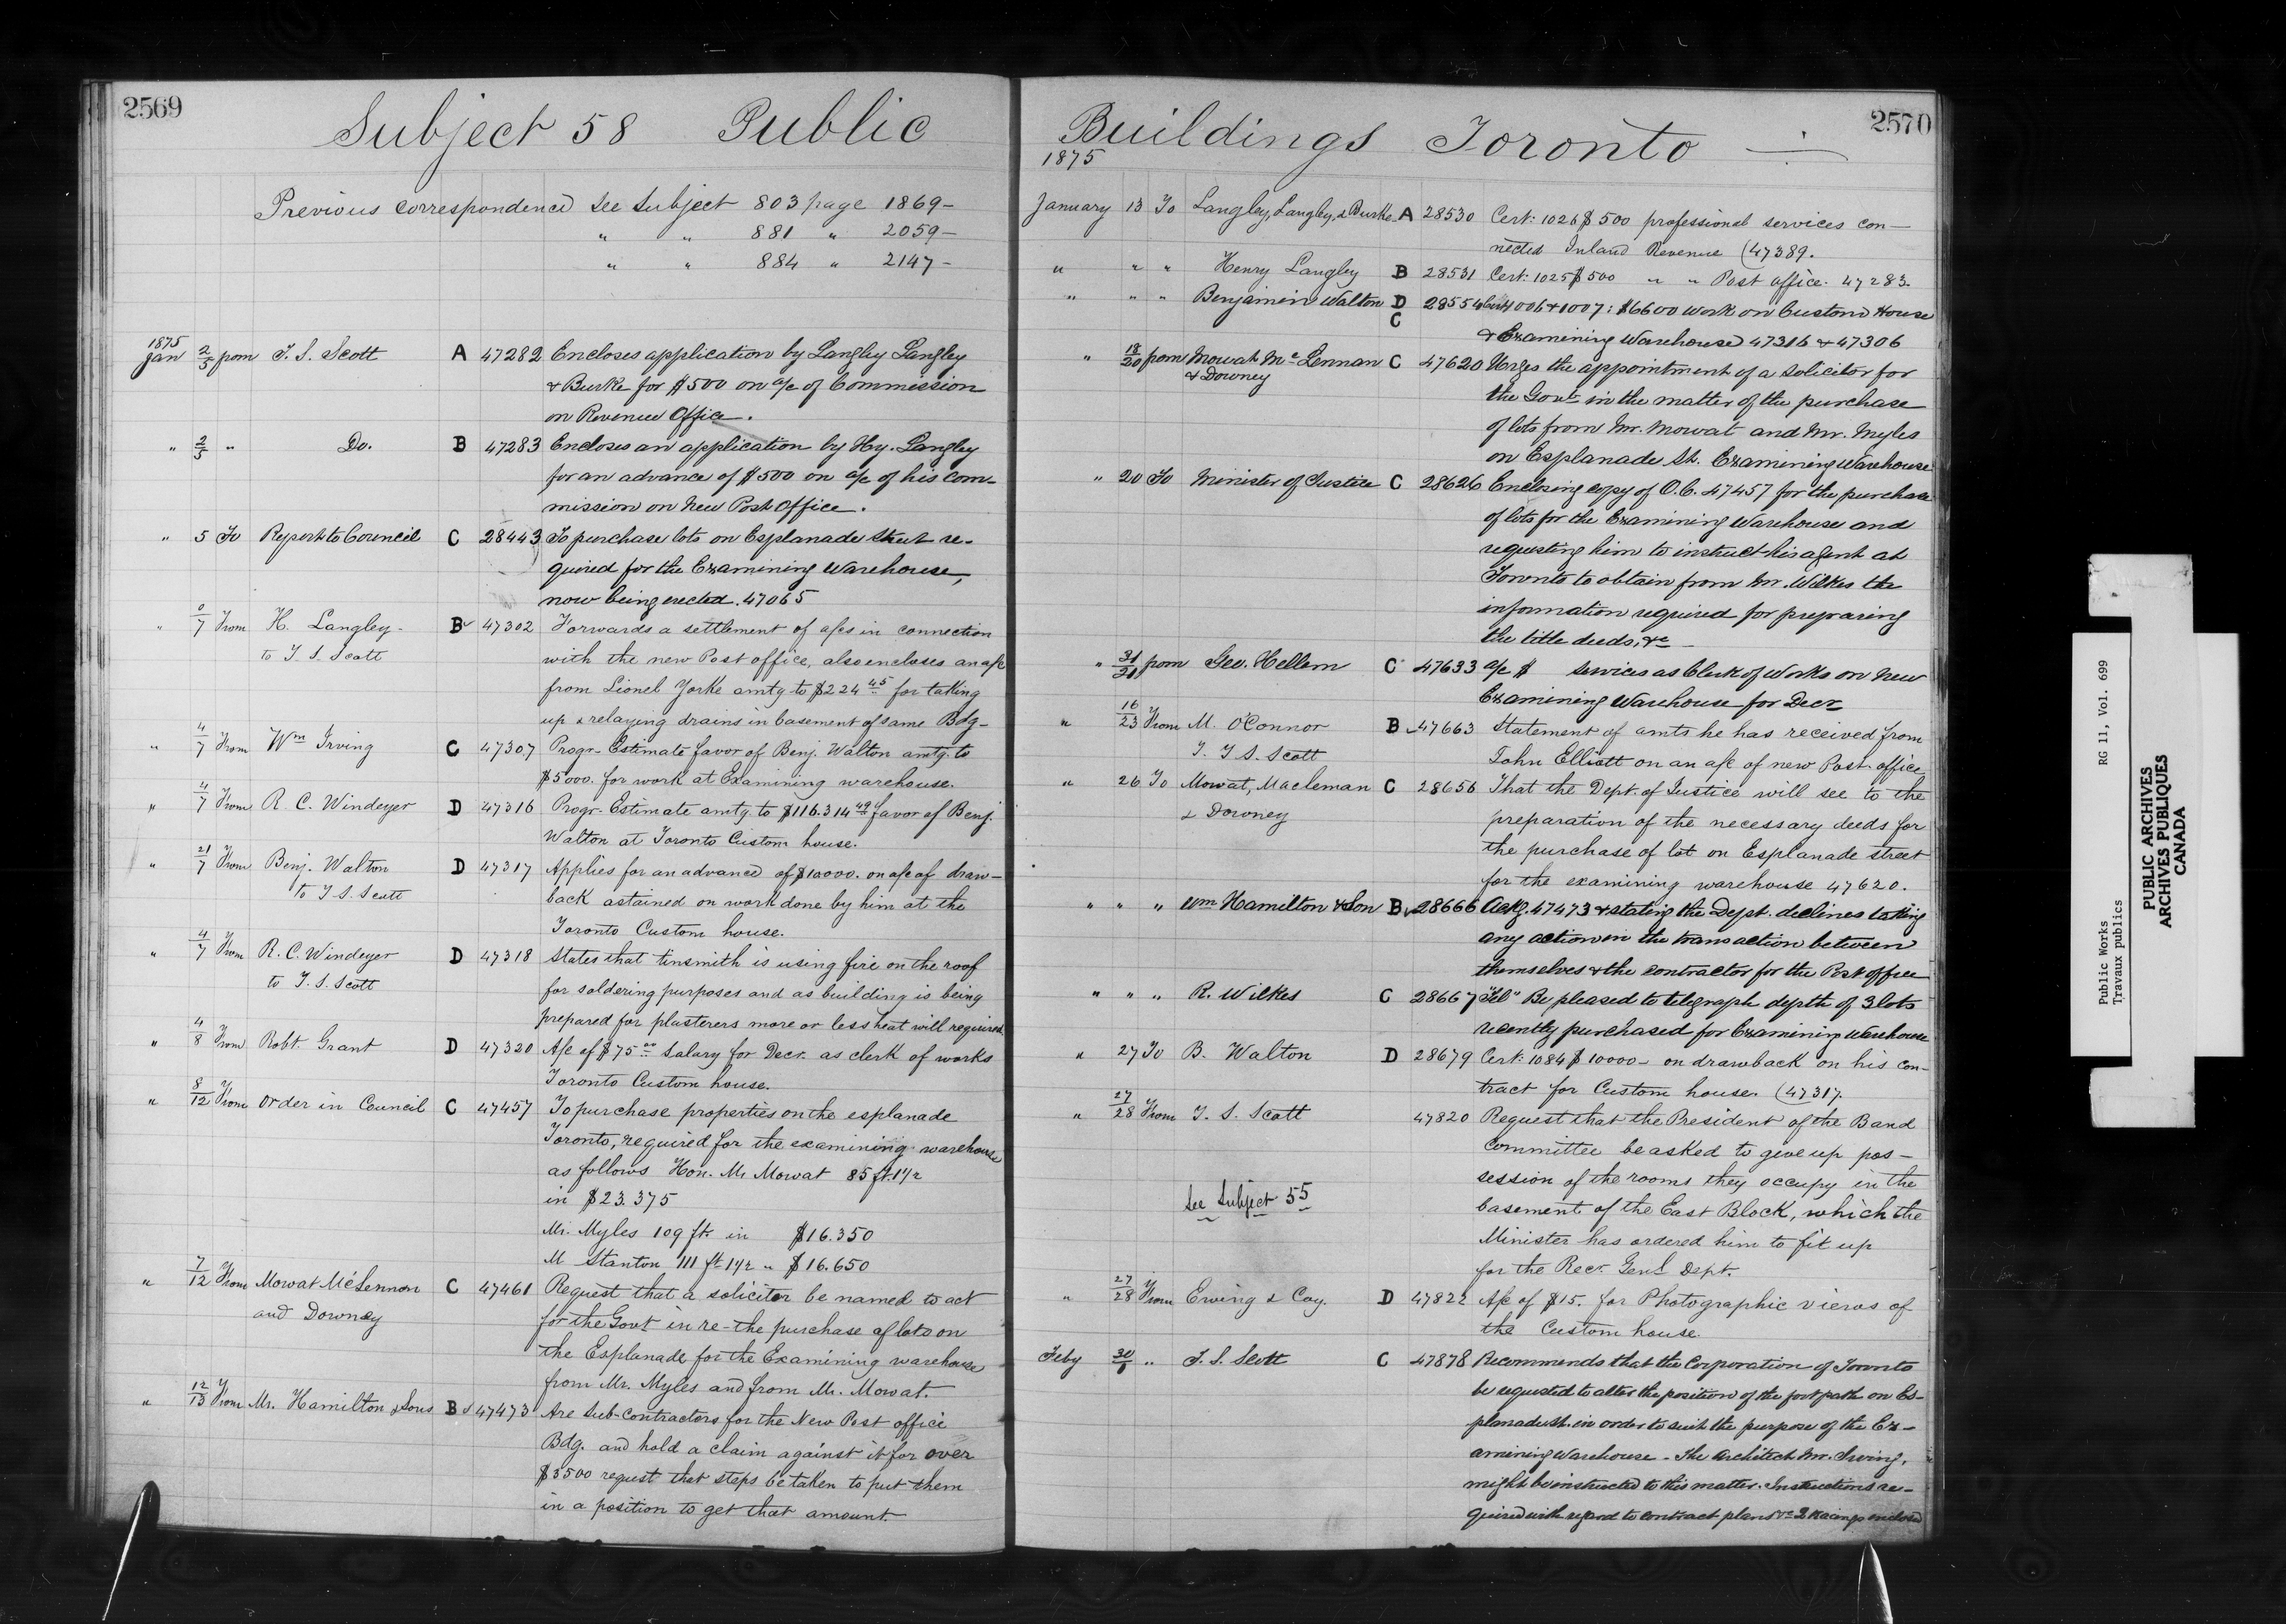 2569
Subject 58 Public
Previous correspondence see Subject 803 page 1869-
" " 881 " 2059-
" " 884 " 2147-
1875
Jan 2/5 from T. S. Scott A 47282 Encloses application by Langley Langley
& Burke for $500 on a/c of Commission
on Revenue Office.
" 2/5 " Do. B 47283 Encloses an application by Hy. Langley
for an advance of $500 on a/c of his com-
mission on New Post Office.
" 5 To Report to Council C 28443 To purchase lots on Esplanade Street re-
quired for the Examining Warehouse,
now being erected. 47065
" /7 From H. Langley- B 47302 Forwards a settlement of a/cs in connection
to T. S. Scott with the new Post office, also encloses an a/c
from Lionel Yorke amtg to $224 45 for taking
up & relaying drains in basement of same Bdg-
" 4/7 From Wm Irving C 47307 Progr- Estimate favor of Benj. Walton amtg. to
$5000. for work at Examining warehouse.
" 4/7 From R. C. Windeyer D 47316 Progr- Estimate amtg. to $116.314 49 favor of Benj.
Walton at Toronto Custom house.
" 21/7 From Benj. Walton D 47317 Applies for an advance of $10000. on a/c of draw-
to T. S. Scott back astained on work done by him at the
Toronto Custom house.
" 4/7 From R. C. Windeyer D 47318 States that tinsmith is using fire on the roof
to T. S. Scott for soldering purposes and as building is being
prepared for plasterers more or less heat will required
" 4/8 From Robt. Grant D 47320 A/c of $75 00 Salary for Decr. as clerk of works
Toronto Custom house.
" 8/12 From Order in Council C 47457 To purchase properties on the esplanade
Toronto, required for the examining warehouse
as follows Hon. Mr Mowat 85 ft. 1 1/2
in $23.375
Mr. Myles 109 ft. in $16.350
M Stanton 111 ft 1 1/2 " $16.650
" 7/12 From Mowat McLennon C 47461 Request that a solicitor be named to act
and Downey for the Govt in re-the purchase of lots on
the Esplanade for the Examining warehouse
from Mr. Myles and from Mr. Mowat.
" 12/13 From Mr. Hamilton & Sons B 47473 Are Sub-contractors for the New Post office
Bdg. and hold a claim against it for over
$3500 request that steps be taken to put them
in a position to get that amount.
2570
Buildings Toronto
1875
January 13 To Langley, Langley, & Burke A 28530 Cert: 1026 $500 professional services con-
nected Inland Revenue (47389.
" " " Henry Langley B 28531 Cert: 1025 $500 " " Post office. 47283.
" " " Benjamin Walton D C 28554 Cert 1006 & 1007: $6600 work on Custom House
& Examining Warehouse 47316 & 47306
" 18/20 from Mowat McLennan C 47620 Urges the appointment of a solicitor for
& Downey the Govt. in the matter of the purchase
of lots from Mr. Mowat and Mr. Myles
on Esplanade St. Examining Warehouse
" 20 To Minister of Justice C 28626 Enclosing copy of O.C. 47457 for the purchase
of lots for the Examining Warehouse and
requesting him to instruct his agent at
Toronto to obtain from Mr. Wilkes the
information required for preparing
the title deeds, &c
" 31/21 from Geo. Hellem C 47633 a/c $ services as Clerk of Works on New
Examining Warehouse for Decr
" 16/23 From M. O'Connor B 47663 Statement of amts he has received from
T. T. S. Scott John Elliott on an a/c of new Post office
" 26 To Mowat, Macleman C 28656 That the Dept. of Justice will see to the
& Downey preparation of the necessary deeds for
the purchase of lot on Esplanade street
for the examining warehouse 47620.
" " " Wm Hamilton & Son B 28666 Ackg. 47473 & stating the Dept. declines taking
any action in the transaction between
themselves & the contractor for the Post office
" " " R. Wilkes C 28667 "Tel" Be pleased to telegraph depth of 3 lots
recently purchased for Examining Warehouse
" 27 To B. Walton D 28679 Cert: 1084 $10000- on drawback on his con-
tract for Custom house. (47317.
" 27/28 From T. S. Scott 47820 Request that the President of the Band
Committee be asked to give up pos-
session of the rooms they occupy in the
See Subject 55
basement of the East Block, which the
Minister has ordered him to fit up
for the Recr. Genl Dept.
" 27/28 From Ewing & Coy. D 47822 A/c of $15. for Photographic views of
the Custom house.
Feby 30/1 " T. S. Scott C 47878 Recommends that the Corporation of Toronto
be requested to alter the position of the foot path on Es-
planade St. in order to suit the purpose of the Ex-
amining Warehouse - The Architect Mr. Irving,
might be instructed to this matter. Instructions re-
quired with regard to contract plans &c 2 tracings enclosed
Public Works RG 11, Vol. 699
Travaux publics
PUBLIC ARCHIVES
ARCHIVES PUBLIQUES
CANADA